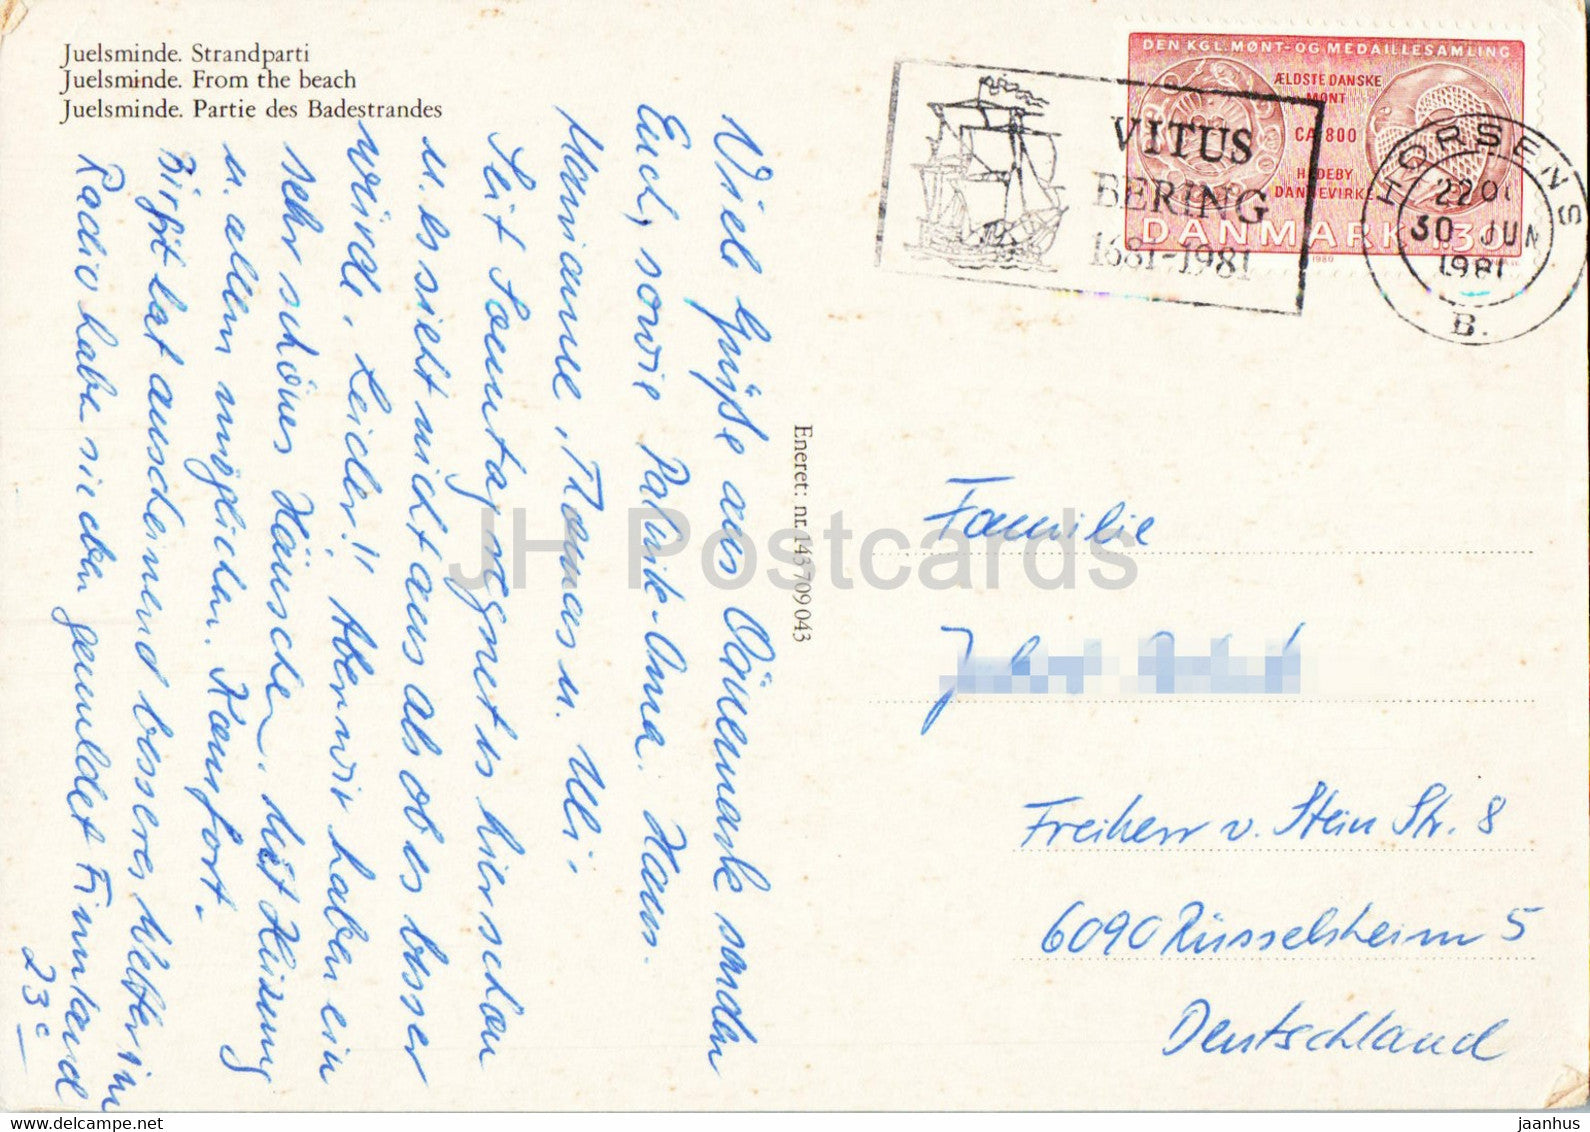 Juelsminde. Strandparti
Juelsminde. From the beach
Juelsminde. Partie des Badestrandes
Viele Grüße aus Dänemark senden
Euch, sowie Patrik-Oma. Hans.
Marianne, Thomas u. Uli.
Seit Sonntag regnet es hier schon
u. es sieht nicht aus als ob es besser
würde, Leider!! Aber wir haben ein
sehr schönes Häuschen. Mit Heizung
u. allem möglichen Komfort.
Birgit hat anscheinend besseres Wetter im
Radio haben sie eben gemeldet Finnland
23°
Eneret: nr. 143709043
DEN KGL. MØNT- OG MEDAILLESAMLING
ÆLDSTE DANSKE
MØNT
CA. 800
HEDEBY
DANNEVIRKE
DANMARK 130
1980
VITUS
BERING
1681-1981
HORSENS
30 JUN
1981
B.
Familie
Freiherr v. Stein Str. 8
6090 Rüsselsheim 5
Deutschland
JH Postcards
www.delcampe.net
jaanhus